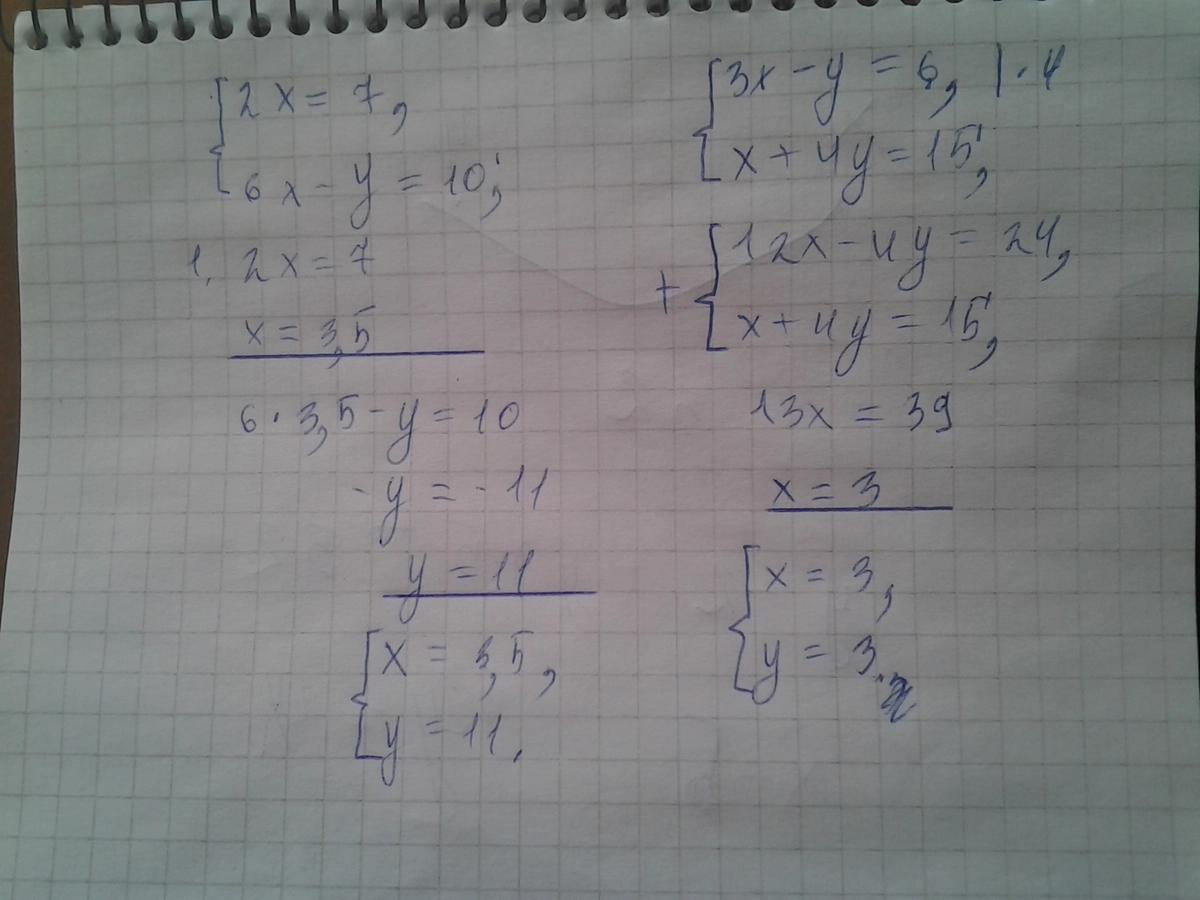 2x = 7,
6x - y = 10;
1. 2x = 7
x = 3,5
6 · 3,5 - y = 10
- y = - 11
y = 11
x = 3,5,
y = 11.
3x - y = 6, | · 4
x + 4y = 15;
+ 12x - 4y = 24,
x + 4y = 15;
13x = 39
x = 3
x = 3,
y = 3.